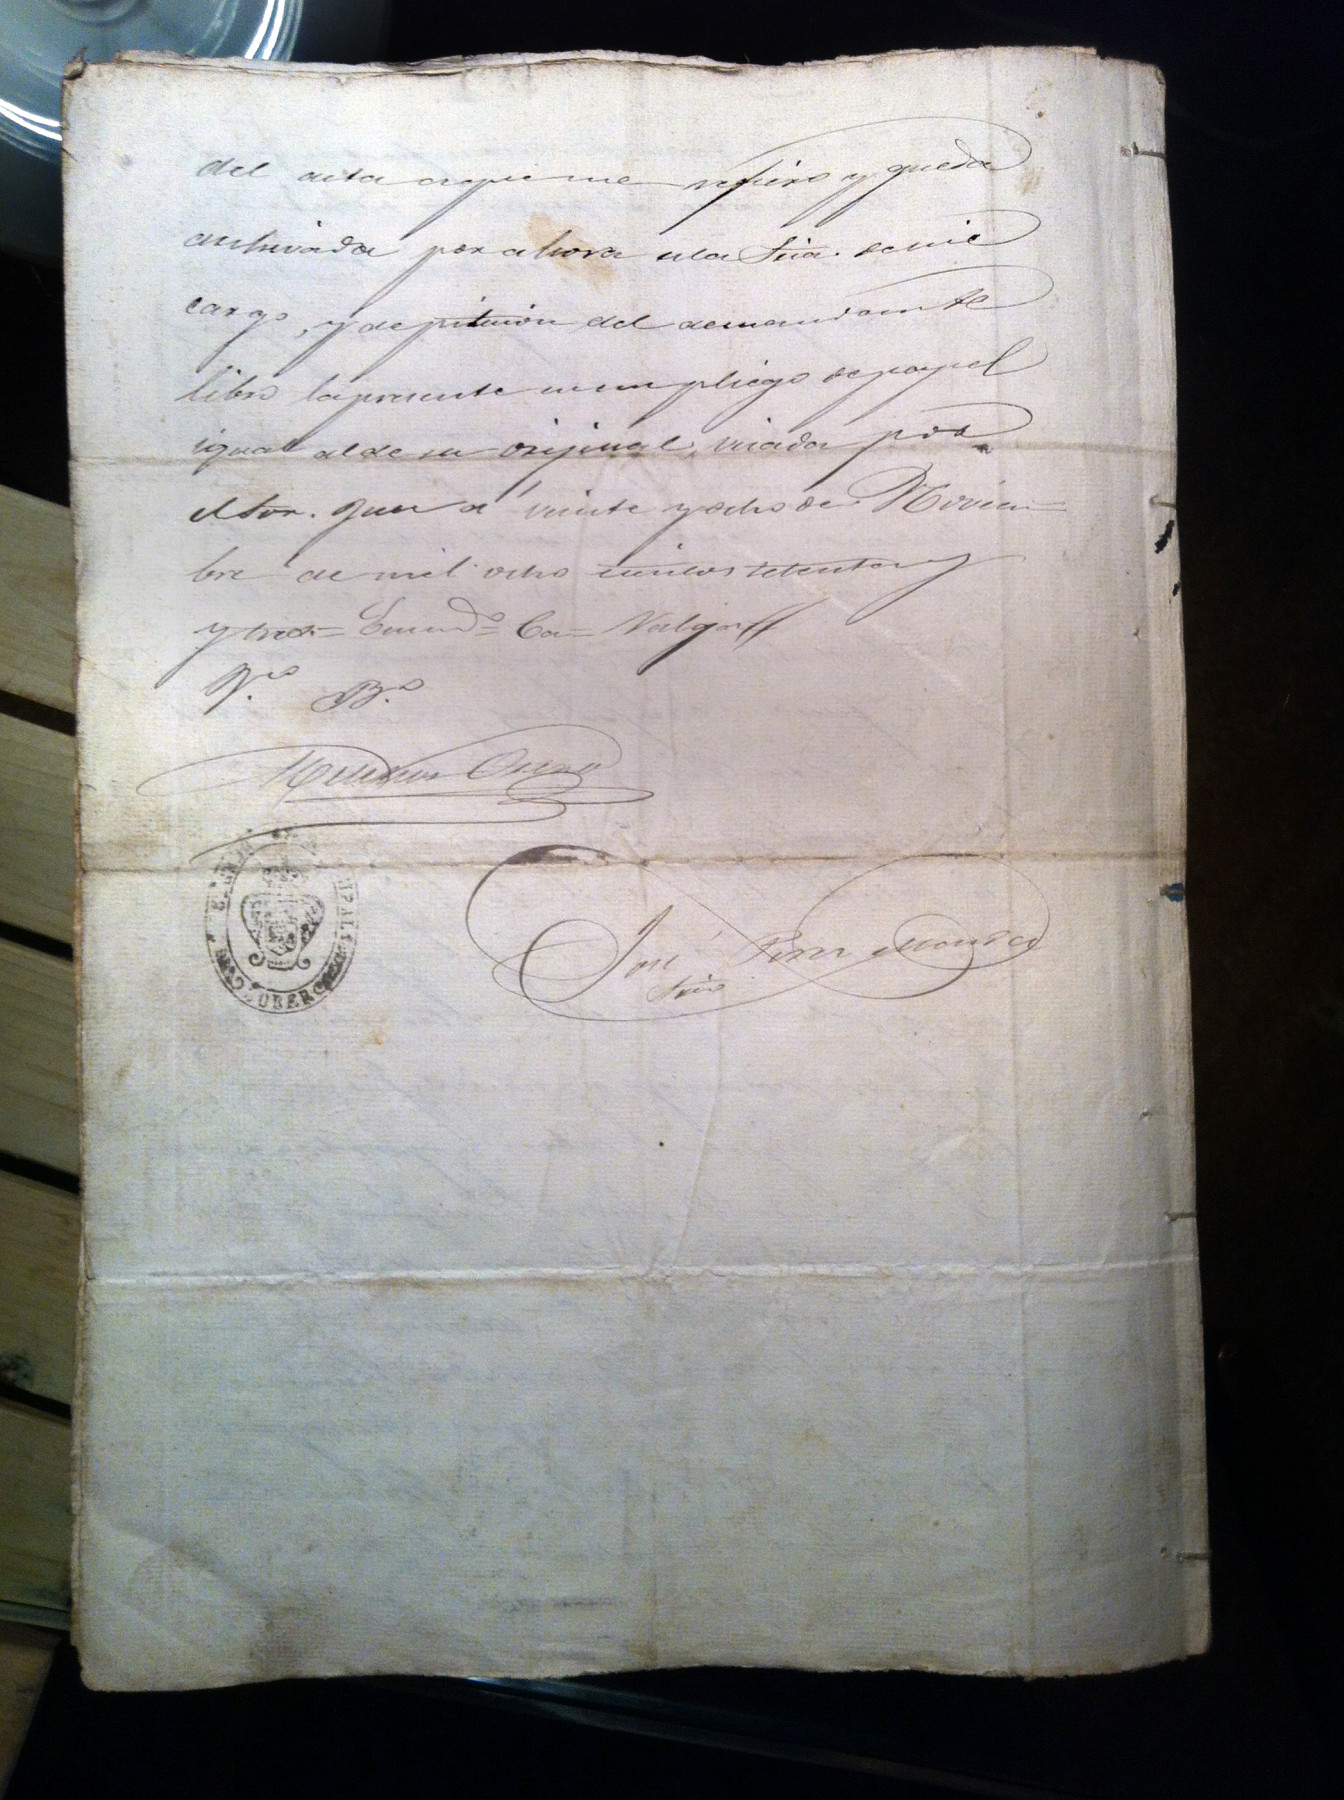 del acta a que me refiero y queda
archivada por ahora en la Sria. de mi
cargo, y de peticion del demandante
libro la presente en un pliego de papel
igual al de su orijinal, visada por
el Sor. Juez a veinte y ocho de Noviem=
bre de mil ocho cientos setenta y
y tres= Enmdo= Ca= Valga
V.º B.º
José
Srio